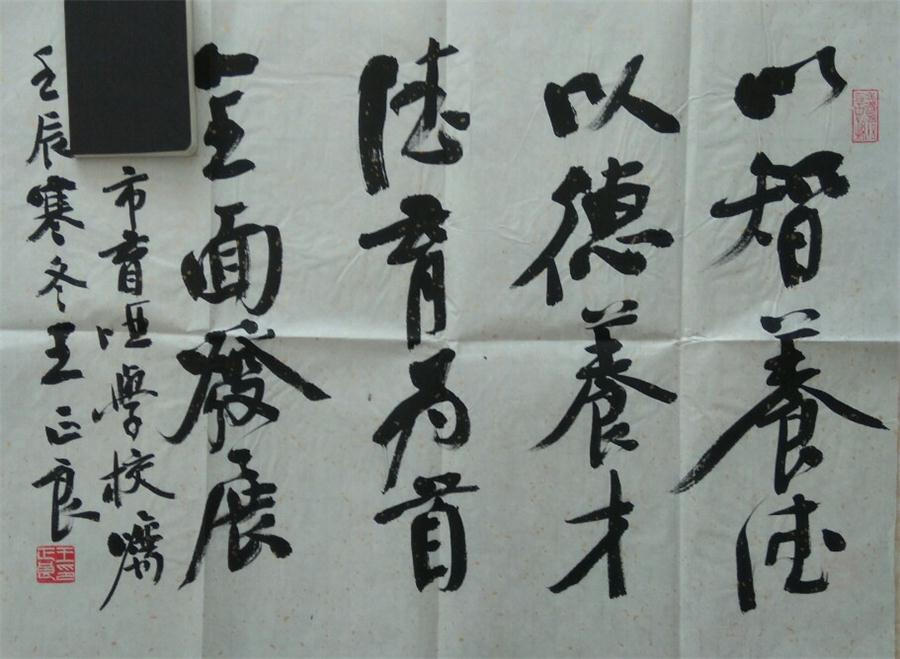 以智養德
以德養才
德育为首
全面發展
市盲哑學校嘱
壬辰寒冬王正良